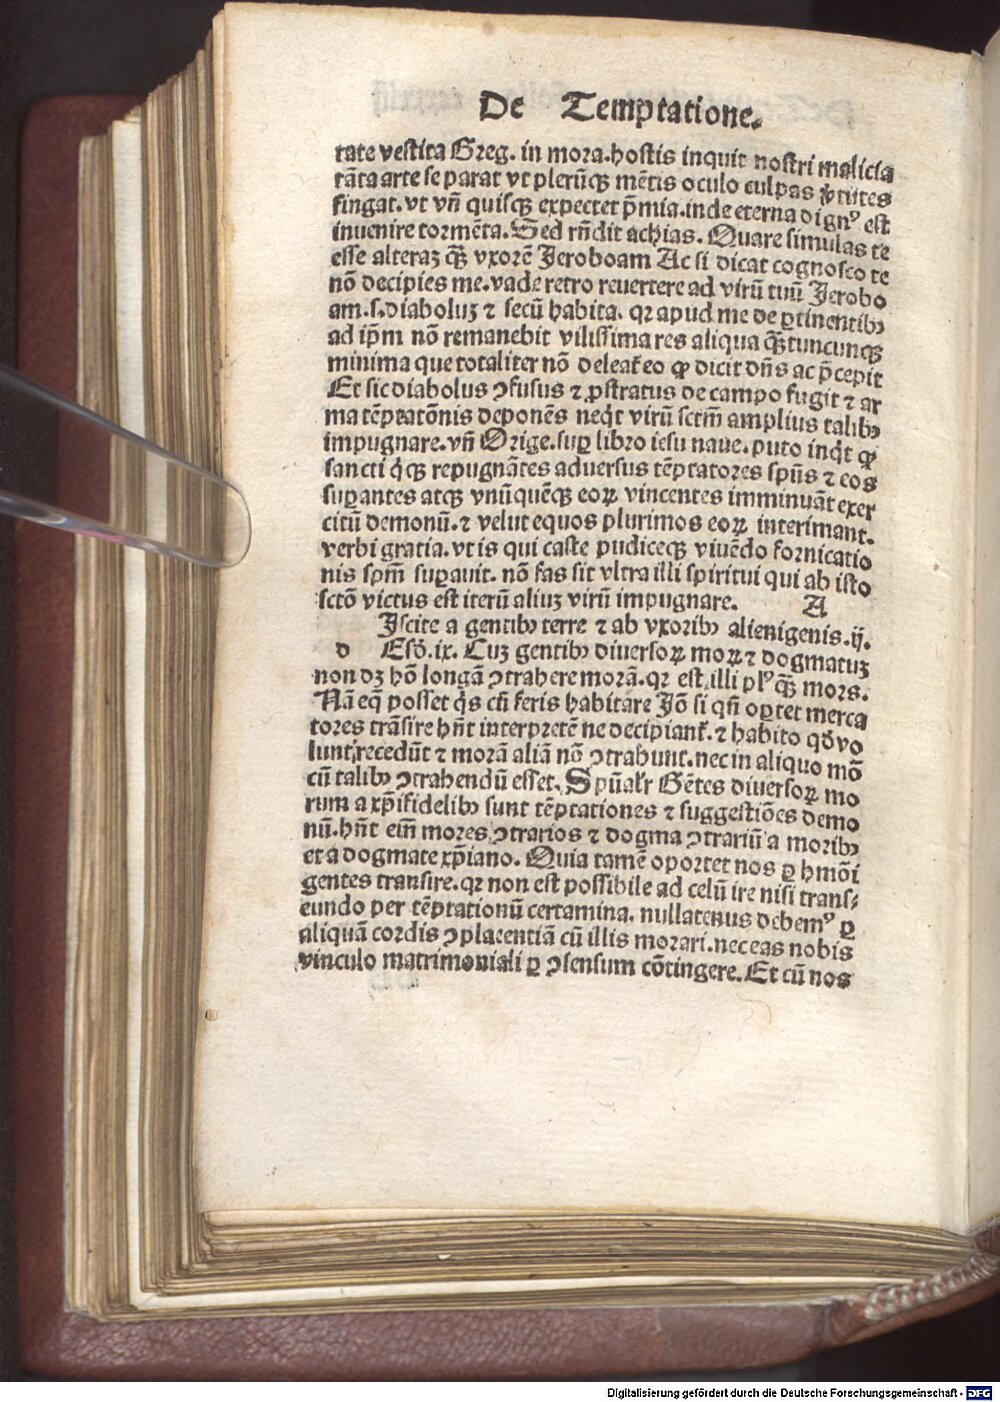 De Temptatione.
tate vestita Greg. in mora. hostis inquit nostri malicia
tāta arte se parat vt plerūqꝫ mētis oculo culpas ꝟtutes
fingat. vt vñ quisqꝫ expectet p̄mia. inde eterna dignꝰ est
inuenire tormēta. Sed rñdit achias. Quare simulas te
esse alteraꝫ qꝫ̄ vxorē Jeroboam Ac si dicat cognosco te
nō decipies me. vade retro reuertere ad virū tuū Jerobo
am. s. diaboluꝫ ⁊ secū habita. qꝛ apud me de ꝑtinentibꝫ
ad ip̄m nō remanebit vilissima res aliqua qꝫ̄tuncunqꝫ
minima que totaliter nō deleat᷑ eo ꝙ dicit dñs ac p̄cepit
Et sic diabolus ꝯfusus ⁊ ꝓstratus de campo fugit ⁊ ar
ma tēptatōnis deponēs neqͥt virū sctm̄ amplius talibꝫ
impugnare. vñ Orige. suꝑ libro iesu naue. puto inqͥt ꝙ
sancti qͥqꝫ repugnātes aduersus tēptatores spūs ⁊ eos
suꝑantes atqꝫ vnūquēqꝫ eoꝝ vincentes imminuāt exer
citū demonū. ⁊ velut equos plurimos eoꝝ interimant.
verbi gratia. vt is qui caste pudiceqꝫ viuēdo fornicatio
nis spm̄ suꝑauit. nō fas sit vltra illi spiritui qui ab isto
sctō victus est iterū aliuꝫ virū impugnare. A
Jscite a gentibꝫ terre ⁊ ab vxoribꝫ alienigenis. ij.
d Esd̄. ix. Cuꝫ gentibꝫ diuersoꝝ moꝝ ⁊ dogmatuꝫ
non dꝫ hō longā ꝯtrahere morā. qꝛ est illi plꝰ qꝫ̄ mors.
Nā eq̄ posset qͥs cū feris habitare Jō si qn̄ oꝑtet merca
tores trāsire hn̄t interpretē ne decipiant᷑. ⁊ habito qd̄ vo
lunt recedūt ⁊ morā aliā nō ꝯtrahunt. nec in aliquo mō
cū talibꝫ ꝯtrahendū esset. Spūalr̄ Gētes diuersoꝝ mo
rum a xp̄ifidelibꝫ sunt tēptationes ⁊ suggestiōes demo
nū. hn̄t eīm mores ꝯtrarios ⁊ dogma ꝯtrariū a moribꝫ
et a dogmate xp̄iano. Quia tamē oportet nos ꝑ hmōi
gentes transire. qꝛ non est possibile ad celū ire nisi trans⸗
eundo per tēptationū certamina. nullatenus debemꝰ ꝑ
aliquā cordis ꝯplacentiā cū illis morari. nec eas nobis
vinculo matrimoniali ꝑ ꝯsensum cōtingere. Et cū nos
Digitalisierung gefördert durch die Deutsche Forschungsgemeinschaft - DFG